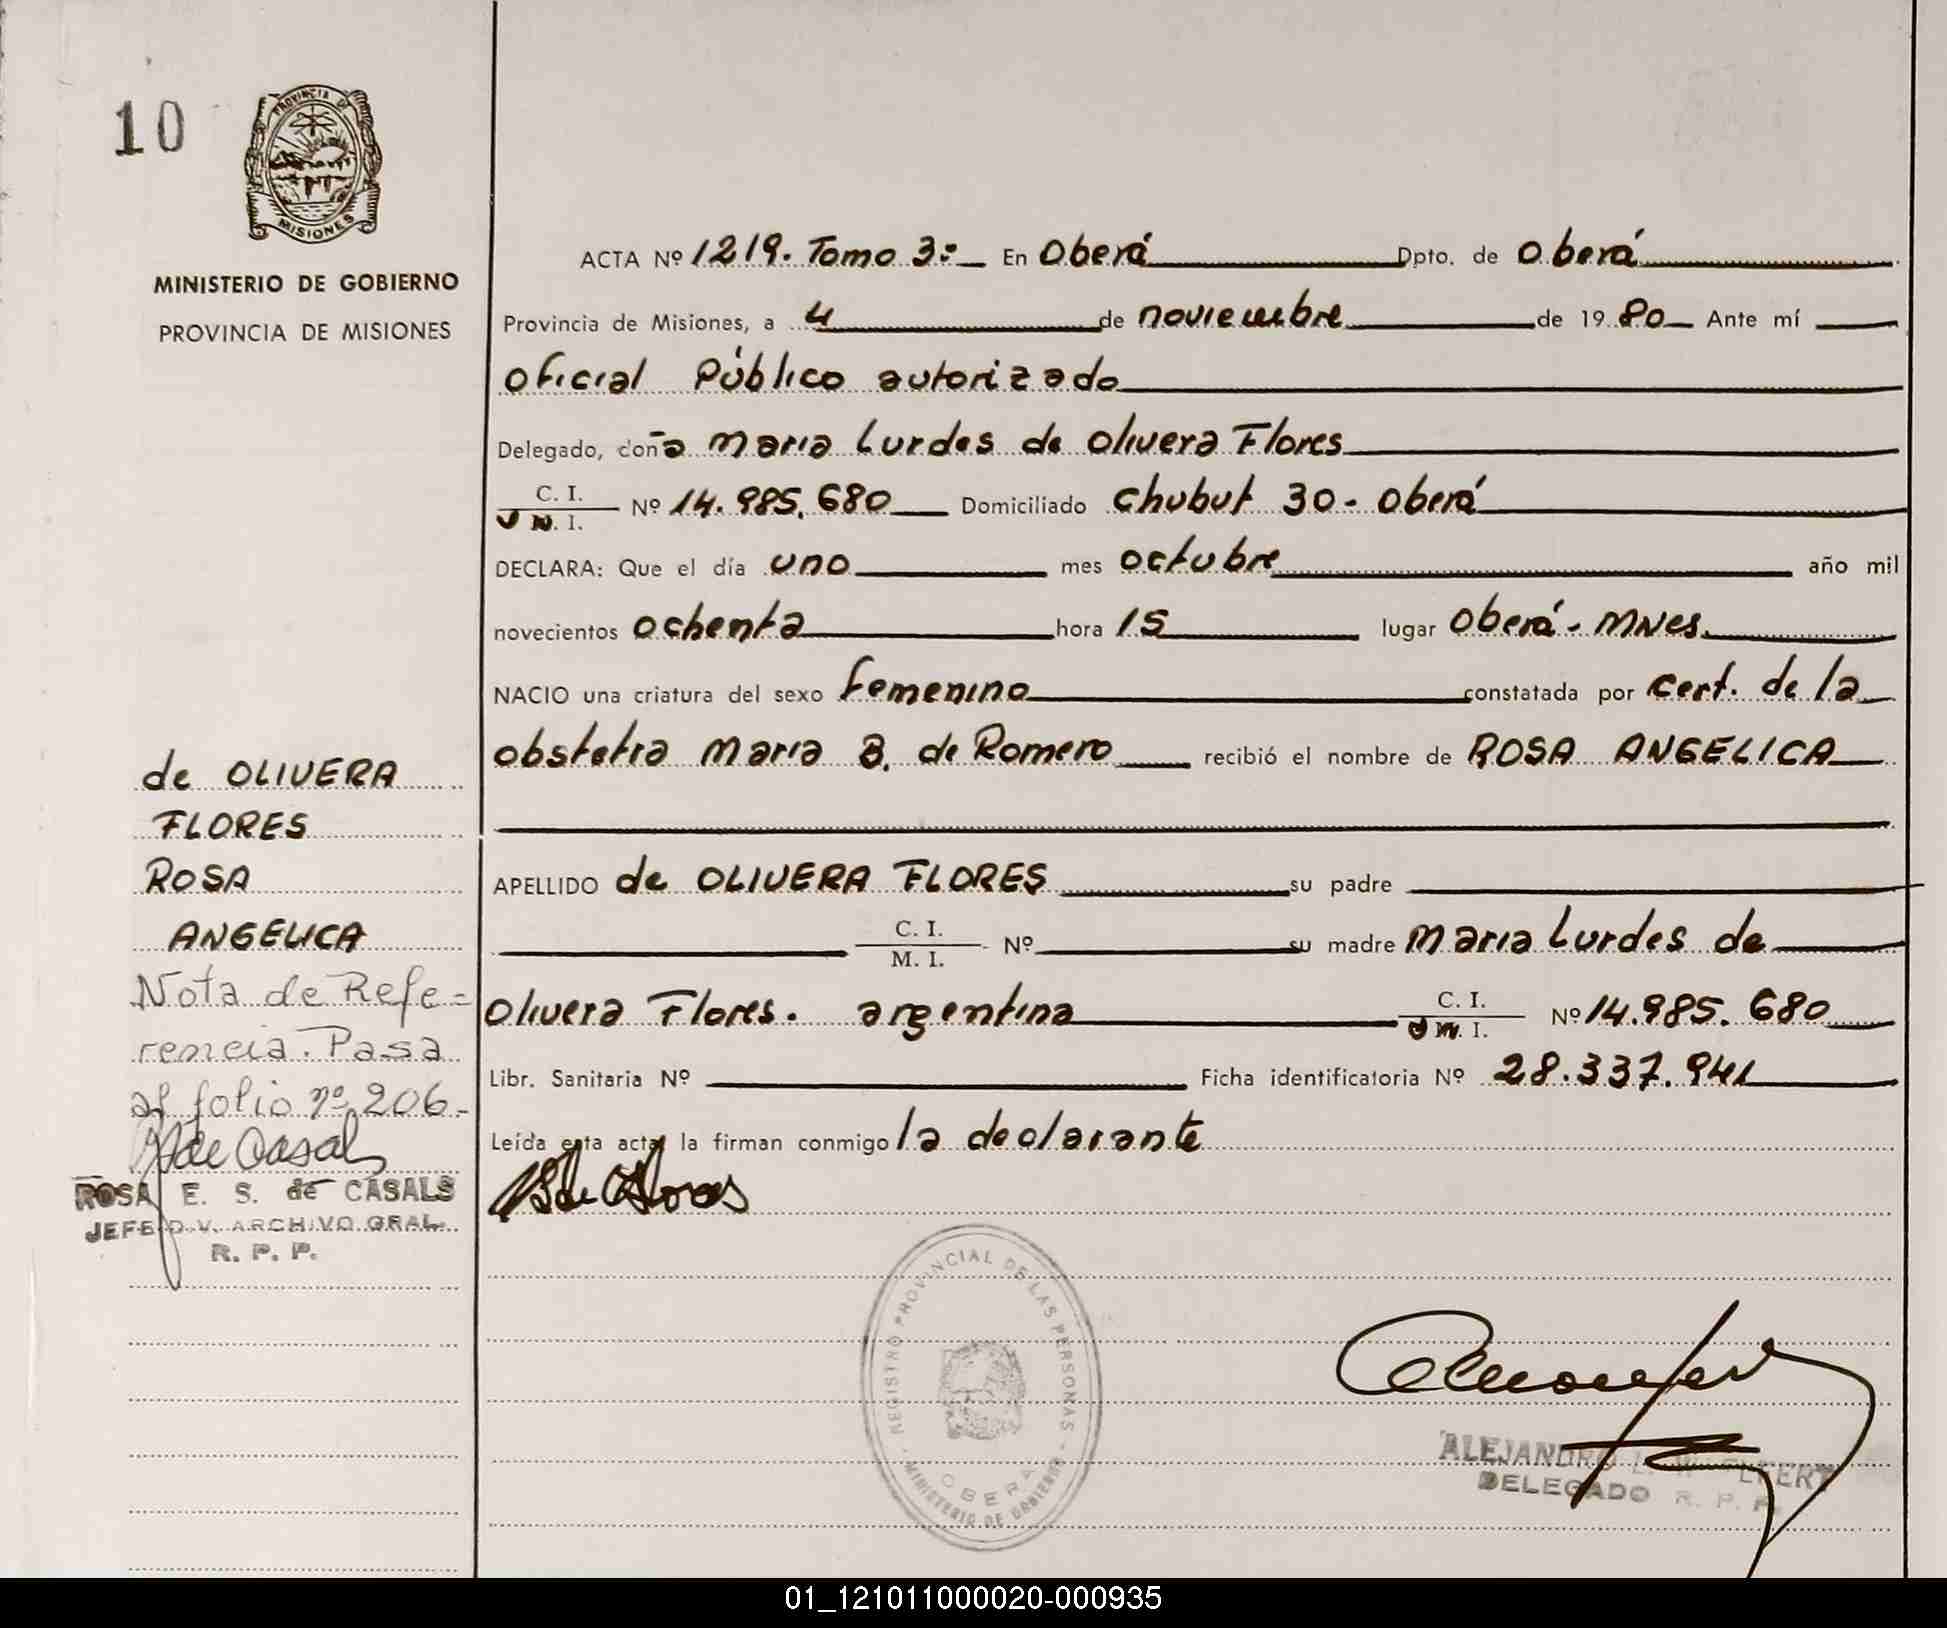 10
PROVINCIA DE
MISIONES
MINISTERIO DE GOBIERNO
PROVINCIA DE MISIONES
ACTA Nº 1219. Tomo 3: En Oberá Dpto. de Oberá
Provincia de Misiones, a 4 de noviembre de 1980 Ante mí
Oficial Público autorizado
Delegado, doña Maria Lurdes de Olivera Flores
C. I.
M. I. Nº 14.985.680 Domiciliado Chubut 30 - Oberá
DECLARA: Que el día uno mes octubre año mil
novecientos ochenta hora 15 lugar Oberá - MNes.
NACIO una criatura del sexo femenino constatada por cert. de la
obstetra Maria B. de Romero recibió el nombre de ROSA ANGELICA
APELLIDO de OLIVERA FLORES su padre
C. I.
M. I. Nº su madre Maria Lurdes de
Olivera Flores. argentina C. I.
M. I. Nº 14.985.680
Libr. Sanitaria Nº Ficha identificatoria Nº 28.337.941
Leída esta acta, la firman conmigo la declarante
de OLIVERA
FLORES
ROSA
ANGELICA
Nota de Refe=
rencia. Pasa
al folio nº 206-
de Casals
ROSA E. S. de CASALS
JEFE DIV. ARCHIVO GRAL.
R. P. P.
REGISTRO PROVINCIAL DE LAS PERSONAS
MINISTERIO DE GOBIERNO
OBERA
ALEJANDRO
DELEGADO R. P. P.
01_121011000020-000935